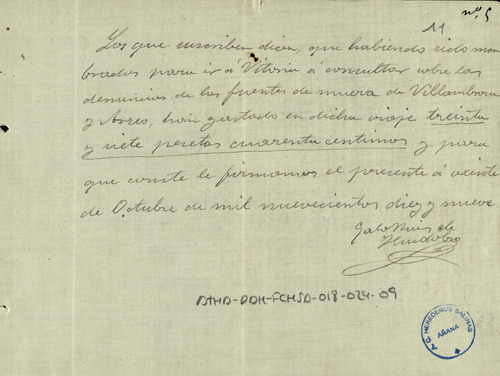 nº 5
11
Los que suscriben dicen, que habiendo sido nom
brados para ir á Vitoria á consultar sobre las
denuncias de las fuentes de muera de Villambrosa
y Arreo, han gastado en dicho viaje treinta
y siete pesetas cuarenta centimos y para
que conste le firmamos el presente á veinte
de Octubre de mil nuevecientos diez y nueve
Galo Ruiz de
Huidobro
ATHD-DDH-FCHSD-018-024-09
HEREDEROS SALINAS
AÑANA